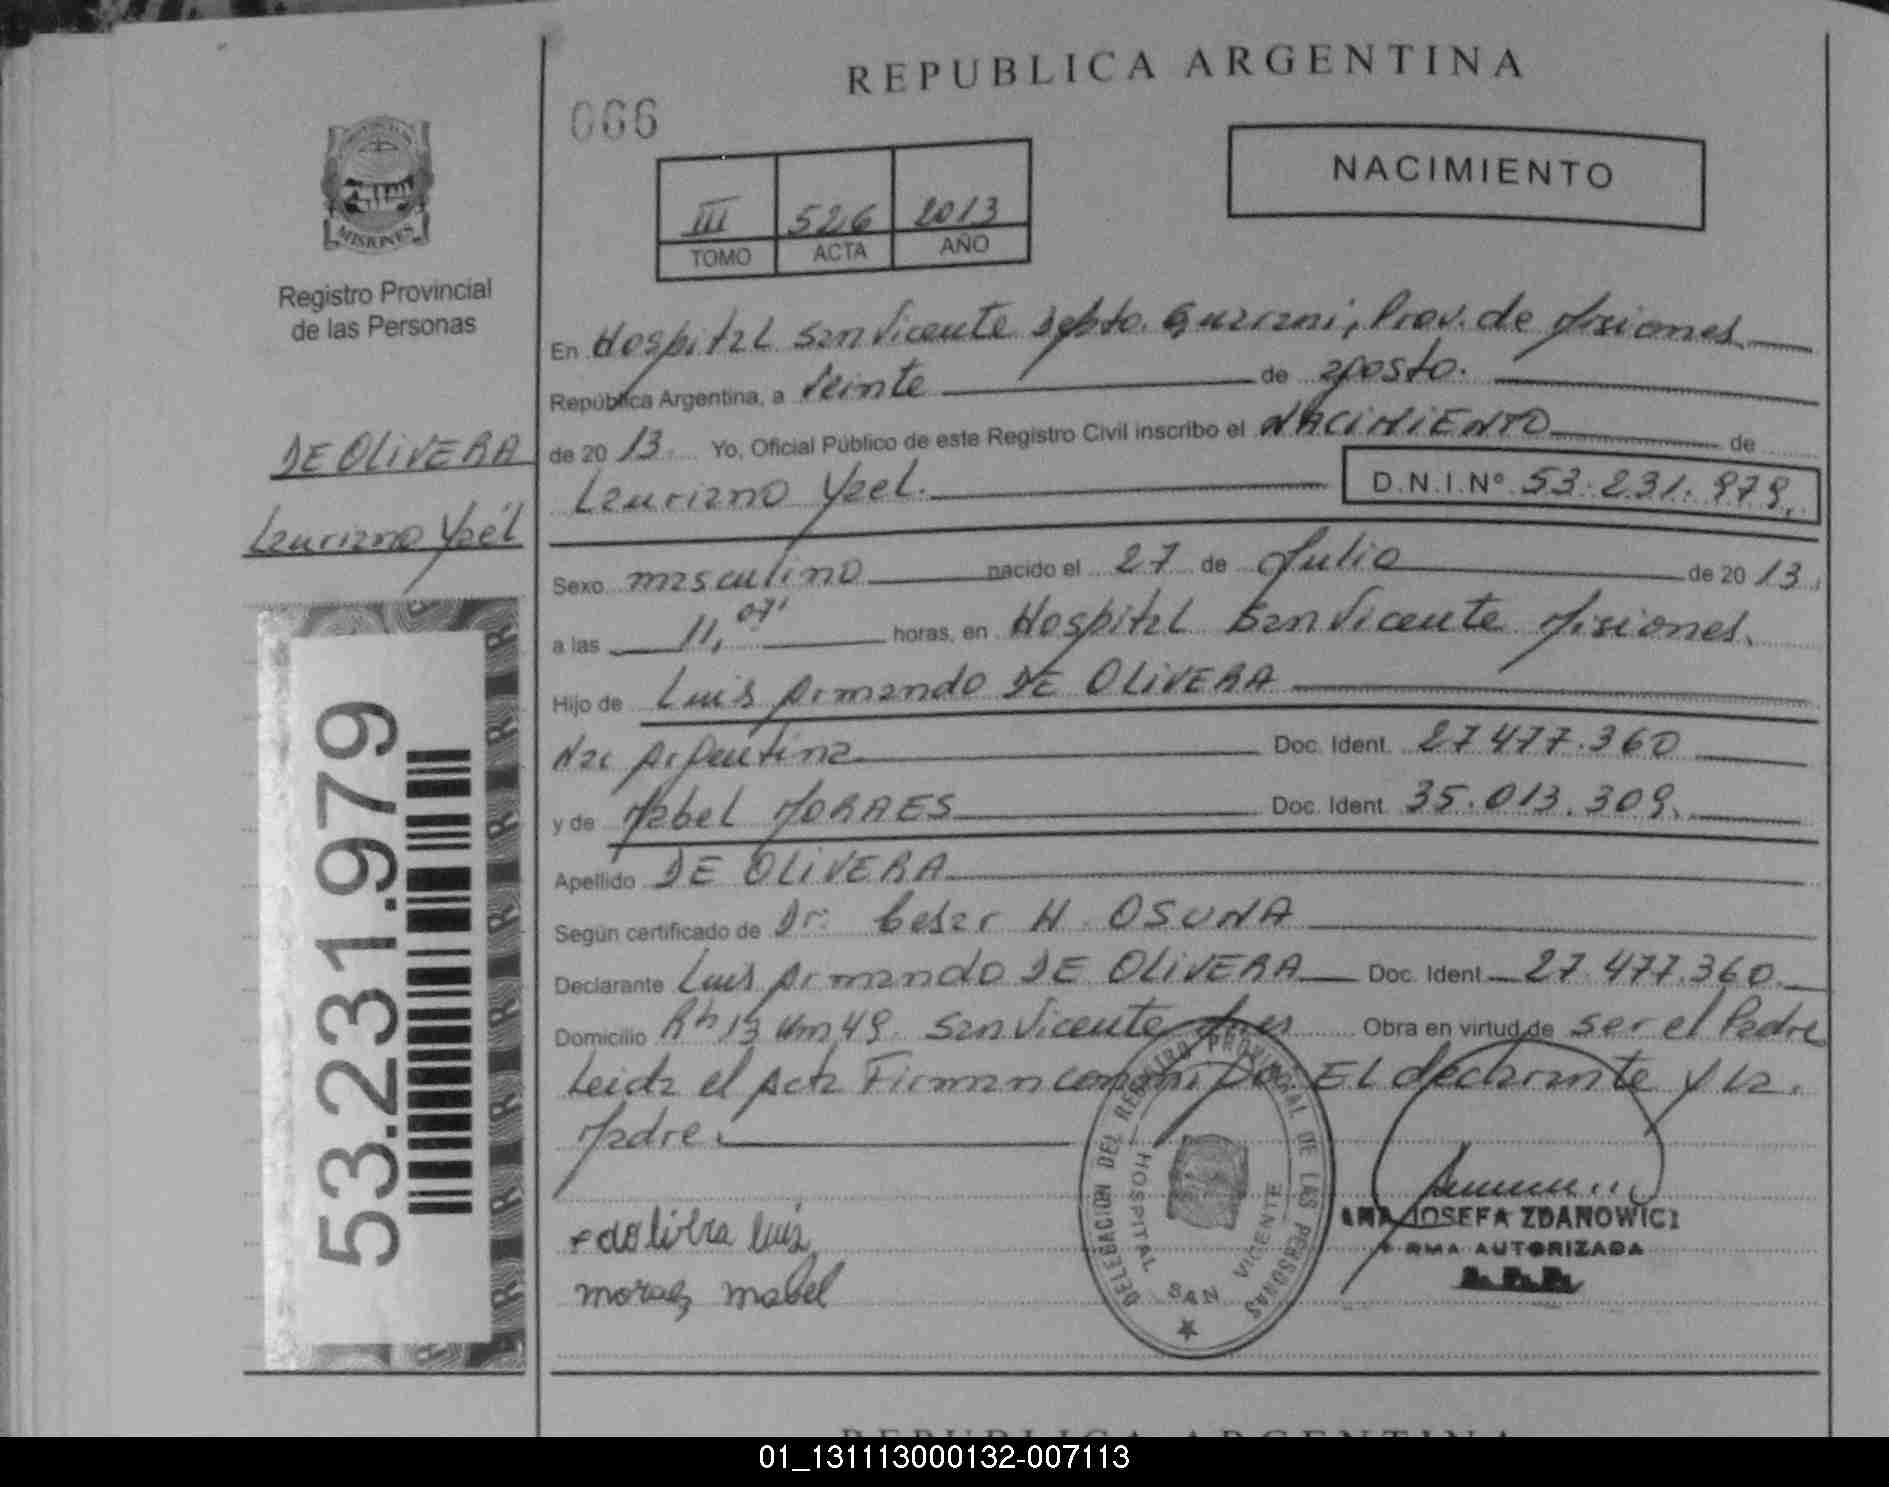 REPUBLICA ARGENTINA
066
NACIMIENTO
III 526 2013
TOMO ACTA AÑO
MISIONES
Registro Provincial
de las Personas
DE OLIVERA
Lauriano Yael
53.231.979
En Hospital San Vicente Depto. Guarani, Prov. de Misiones
República Argentina, a Veinte de agosto.
de 2013. Yo, Oficial Público de este Registro Civil inscribo el NACIMIENTO de
Lauriano Yael. D.N.I.Nº 53.231.979.
Sexo masculino nacido el 27 de Julio de 2013
a las 11,07' horas, en Hospital San Vicente Misiones.
Hijo de Luis Armando DE OLIVERA
Nac Argentina Doc. Ident. 27.477.360
y de Mabel MORAES Doc. Ident. 35.013.309.
Apellido DE OLIVERA
Según certificado de Dr. Cesar H. OSUNA
Declarante Luis Armando DE OLIVERA Doc. Ident. 27.477.360.
Domicilio 13 Km 49. San Vicente Mnes Obra en virtud de ser el Padre
Leida el Acta Firman conmigo. El declarante y la
Madre.
DELEGACION DEL REGISTRO PROVINCIAL DE LAS PERSONAS
HOSPITAL SAN VICENTE
JOSEFA ZDANOWICZ
AUTORIZADA
luis
moraes mabel
REPUBLICA ARGENTINA
01_131113000132-007113